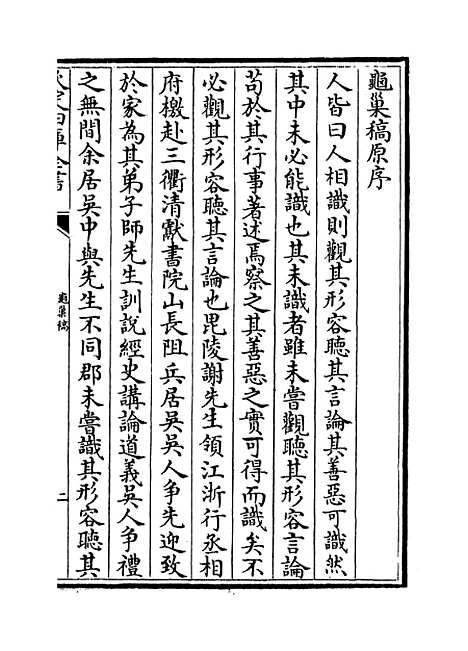 龜巢稿原序
人皆曰人相識則觀其形容聽其言論其善惡可識然
其中未必能識也其未識者雖未嘗觀聽其形容言論
苟於其行事著述焉察之其善惡之實可得而識矣不
必觀其形容聽其言論也毘陵謝先生領江浙行丞相
府檄赴三衢清獻書院山長阻兵居吳吳人争先迎致
於家為其弟子師先生訓說經史講論道義吳人争禮
之無間余居吳中與先生不同郡未嘗識其形容聽其
欽定四庫全書
龜巢稿
二